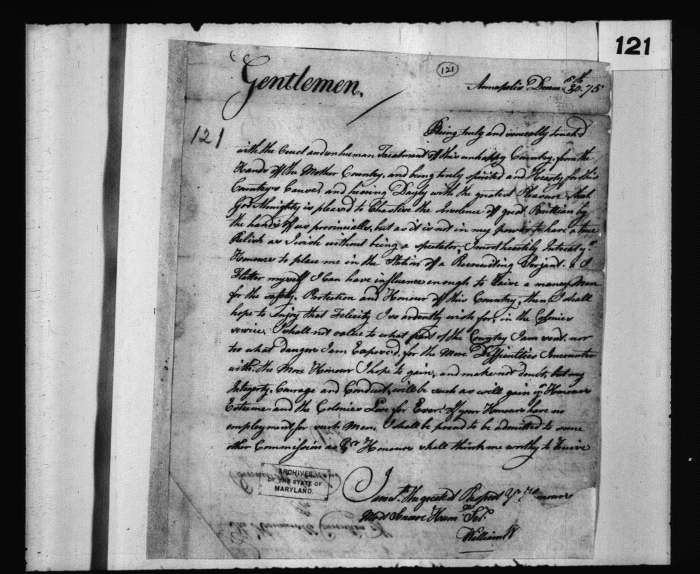 121
(121)
Gentlemen,
Annapolis Decem. 30th 75
121
Being truly and sincerally touch'd
with the Cruel and unhuman Treatment of this unhappy Country, from the
Hands of the Mother Country, and being truly spirited and Hearty for this
Countrys Caused and hearing Dayly with the greatest Pleasure that
God Almighty is pleased to Chastise the Insolence of great Brittian by
the hands of us provincialls, but as it is not in my power to have a true
Relish as I wish without being a spectator, I most heartily Intreat yr
Honours to place me in the Station of a Recruiting Serjant. & I
Flatter myself I Can have influence enough to Raise a many Men
for the safety, Protection and Honour of this Country, then I shall
hope to Enjoy that Felicity I so ardently wish for, in the Colonies
service, I shall not value to what part of the Country I am sent, nor
too what danger I am Exposed, for the More Difficulties I encounter
with the More Honour I hope to gain, and make not doubt, but my
Integrity, Courage and Conduct, will be such as will gain yr Honours
Esteeme and the Colonies Love for Ever. If your Honours have no
employment for such Men, I shall be proud to be admitted to some
other Commission as Yr Honours shall think me worthy to Receive
I am wth the greatest Respect Yr Honours
Most Sincere Humle Sert
William
ARCHIVES
OF THE STATE OF
MARYLAND